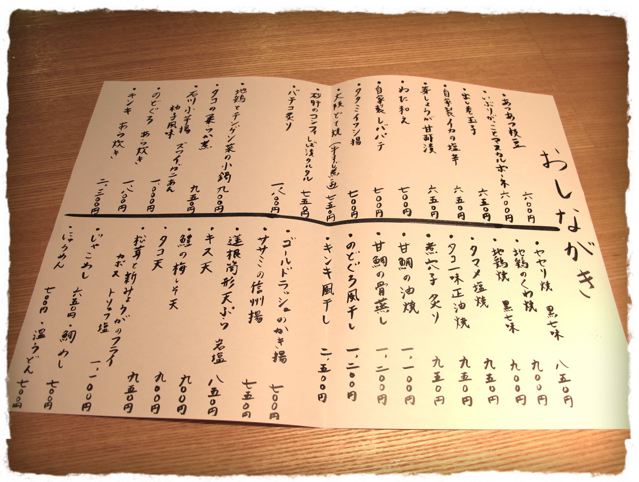 おしながき
・あつあつ枝豆 六〇〇円
・いぶりがっことマスカルポーネ 六〇〇円
・出し巻玉子 六五〇円
・自家製イカの塩辛 六五〇円
・芽しょうが甘酢漬 六五〇円
・わた和え 五〇〇円
・自家製レバパテ 七〇〇円
・タタミイワシ揚 五〇〇円
・大根どて焼 七五〇円
・砂肝のコンフィしば漬タルタル 七五〇円
・バチコ炙り 一、〇〇〇円
・地鶏とチンゲン菜の小鍋 九〇〇円
・タコの柔つ煮
・石川小芋揚 ズワイガニあん 柚子風味 九五〇円
・のどぐろ あら炊き 一、〇〇〇円
・キンキ あら炊き 二、三〇〇円
・ヤゲリ焼 黒七味 八五〇円
・地鶏のくわ焼 九〇〇円
・地鶏焼 黒七味 九〇〇円
・タマメ塩焼 九五〇円
・タコ一味正油焼 九五〇円
・煮穴子 炙り 九五〇円
・甘鯛の油焼 一、一〇〇円
・甘鯛の骨蒸し 一、二〇〇円
・のどぐろ風干し 一、二〇〇円
・キンキ風干し 二、五〇〇円
・ゴールドラッシュのかき揚 七〇〇円
・ササミの信州揚 七五〇円
・蓮根筒形天ぷら 岩塩 八五〇円
・キス天 九〇〇円
・鱧の梅しそ天 九〇〇円
・タコ天 九五〇円
・松茸と新みょうがのフライ カボス トリュフ塩 一、一〇〇円
・じゃこめし 六五〇円 ・鯛めし 七〇〇円
・にゅうめん 七〇〇円 ・温うどん 七〇〇円